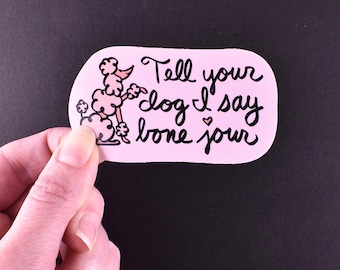 Tell your
dog I say
bone jour